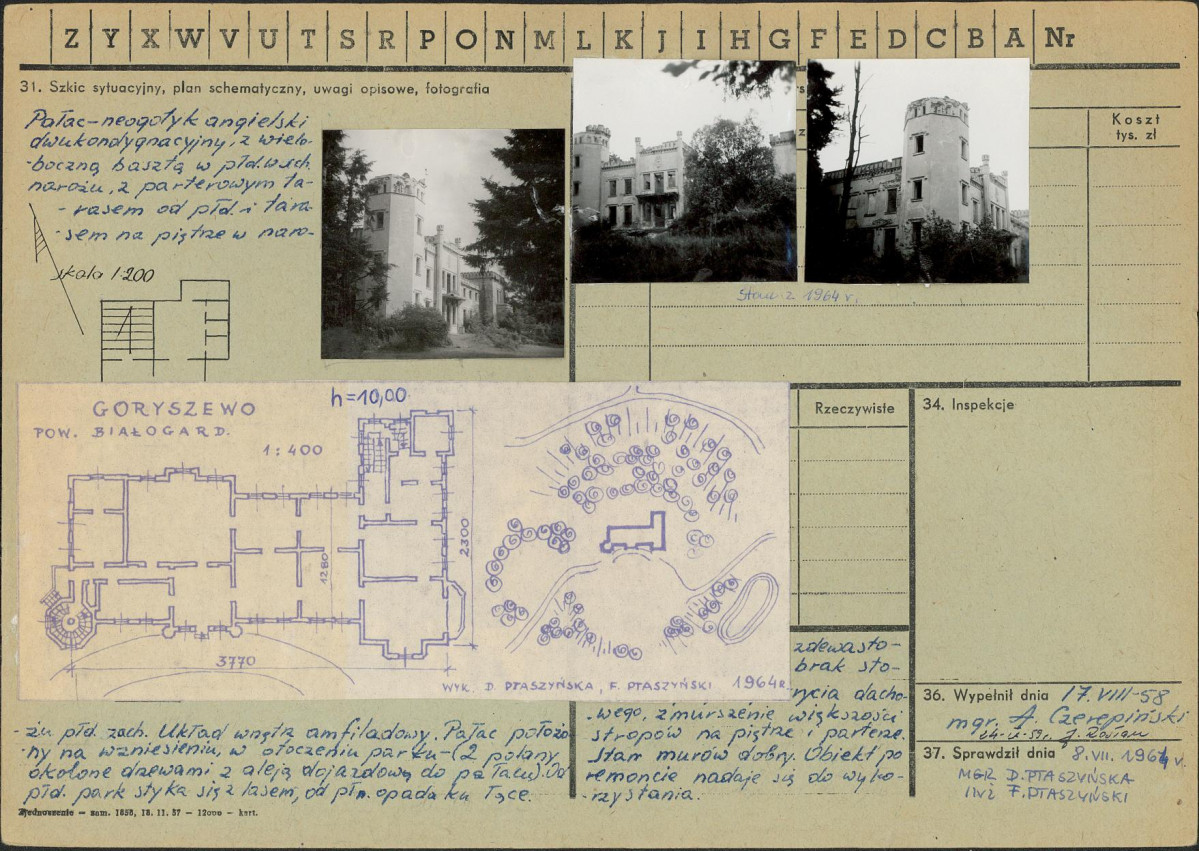 Z Y X W V U T S R P O N M L K J I H G F E D C B A Nr
31. Szkic sytuacyjny, plan schematyczny, uwagi opisowe, fotografia
Pałac-neogotyk angielski
dwukondygnacyjny, z wielo-
-boczną basztą w płd.wsch.
narożu, z parterowym ta-
-rasem od płd. i tara-
-sem na piętrze w naro-
skala 1:200
Stan z 1964 r.
Koszt
tys. zł
GORYSZEWO
POW. BIAŁOGARD.
h=10,00
1:400
1280
2300
3770
WYK. D. PTASZYŃSKA, F. PTASZYŃSKI 1964r.
-żu płd. zach. Układ wnętrz amfiladowy. Pałac położo-
ny na wzniesieniu, w otoczeniu parku-(2 polany
okolone drzewami z aleją dojazdową do pałacu). Od
płd. park styka się z lasem, od płn. opada ku łące.
Zjednoczenie — zam. 1858, 18. 11. 57 — 12000 — kart.
Rzeczywiste
zdewasto-
brak sto-
rycia dacho-
-wego, zmurszenie większości
stropów na piętrze i parterze.
Stan murów dobry. Obiekt po
remoncie nadaje się do wyko-
-rzystania.
34. Inspekcje
36. Wypełnił dnia 17.VIII-58
mgr. A. Czerepiński
37. Sprawdził dnia 8.VII.1964 r.
MGR D.PTASZYŃSKA
INŻ F.PTASZYŃSKI